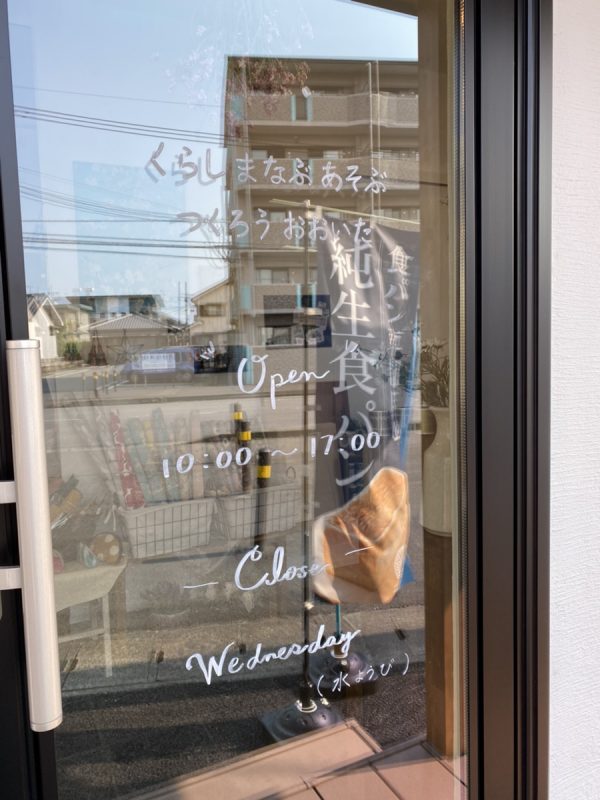 くらし まなぶ あそぶ
つくろう おおいた
Open
10:00 ~ 17:00
— Close —
Wednesday
(水ようび)
純生食パン
食パン